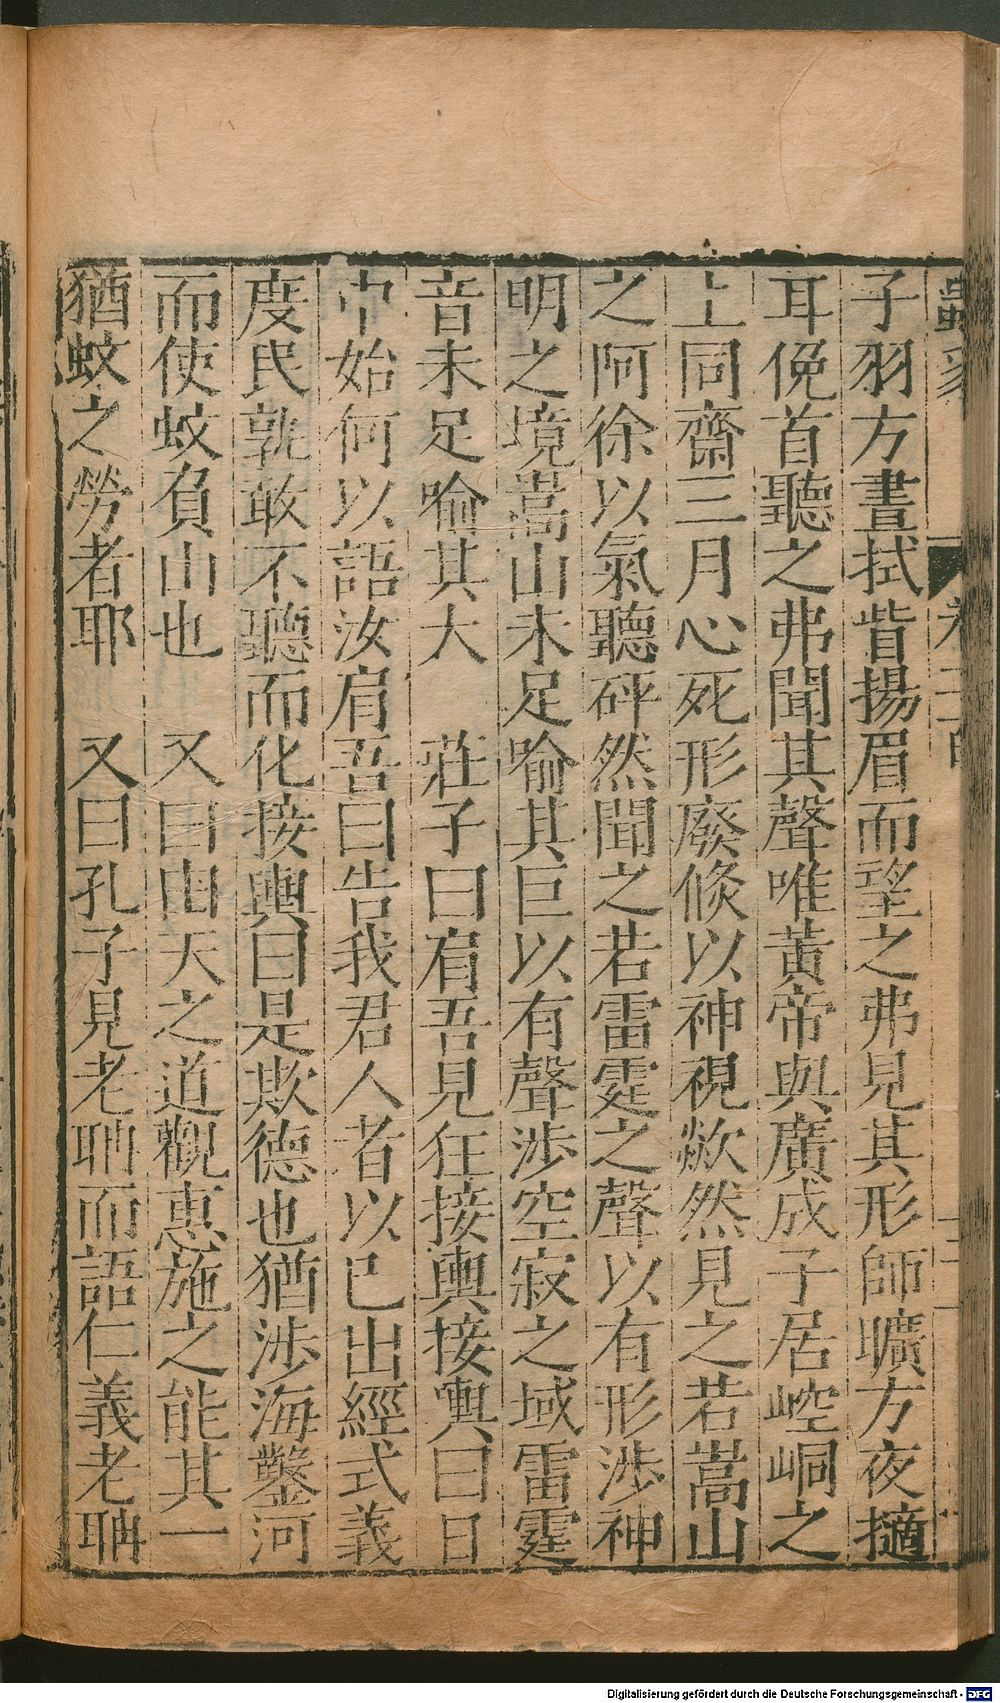 子羽方晝拭眥揚眉而望之弗見其形師曠方夜擿
耳俛首聽之弗聞其聲唯黃帝與廣成子居崆峒之
上同齋三月心死形廢倏以神視欻然見之若嵩山
之阿徐以氣聽砰然聞之若雷霆之聲以有形涉神
明之境嵩山未足喻其巨以有聲涉空寂之域雷霆
音未足喻其大　莊子曰肩吾見狂接輿接輿曰日
中始何以語汝肩吾曰告我君人者以已出經式義
度民孰敢不聽而化接輿曰是欺德也猶涉海鑿河
而使蚊負山也　又曰由天之道觀惠施之能其一
猶蚊之勞者耶　又曰孔子見老聃而語仁義老聃
Digitalisierung gefördert durch die Deutsche Forschungsgemeinschaft - DFG